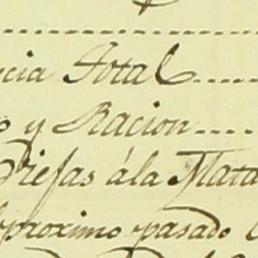 ncia Total
o y Racion
Priesas á la Mata
proximo pasado